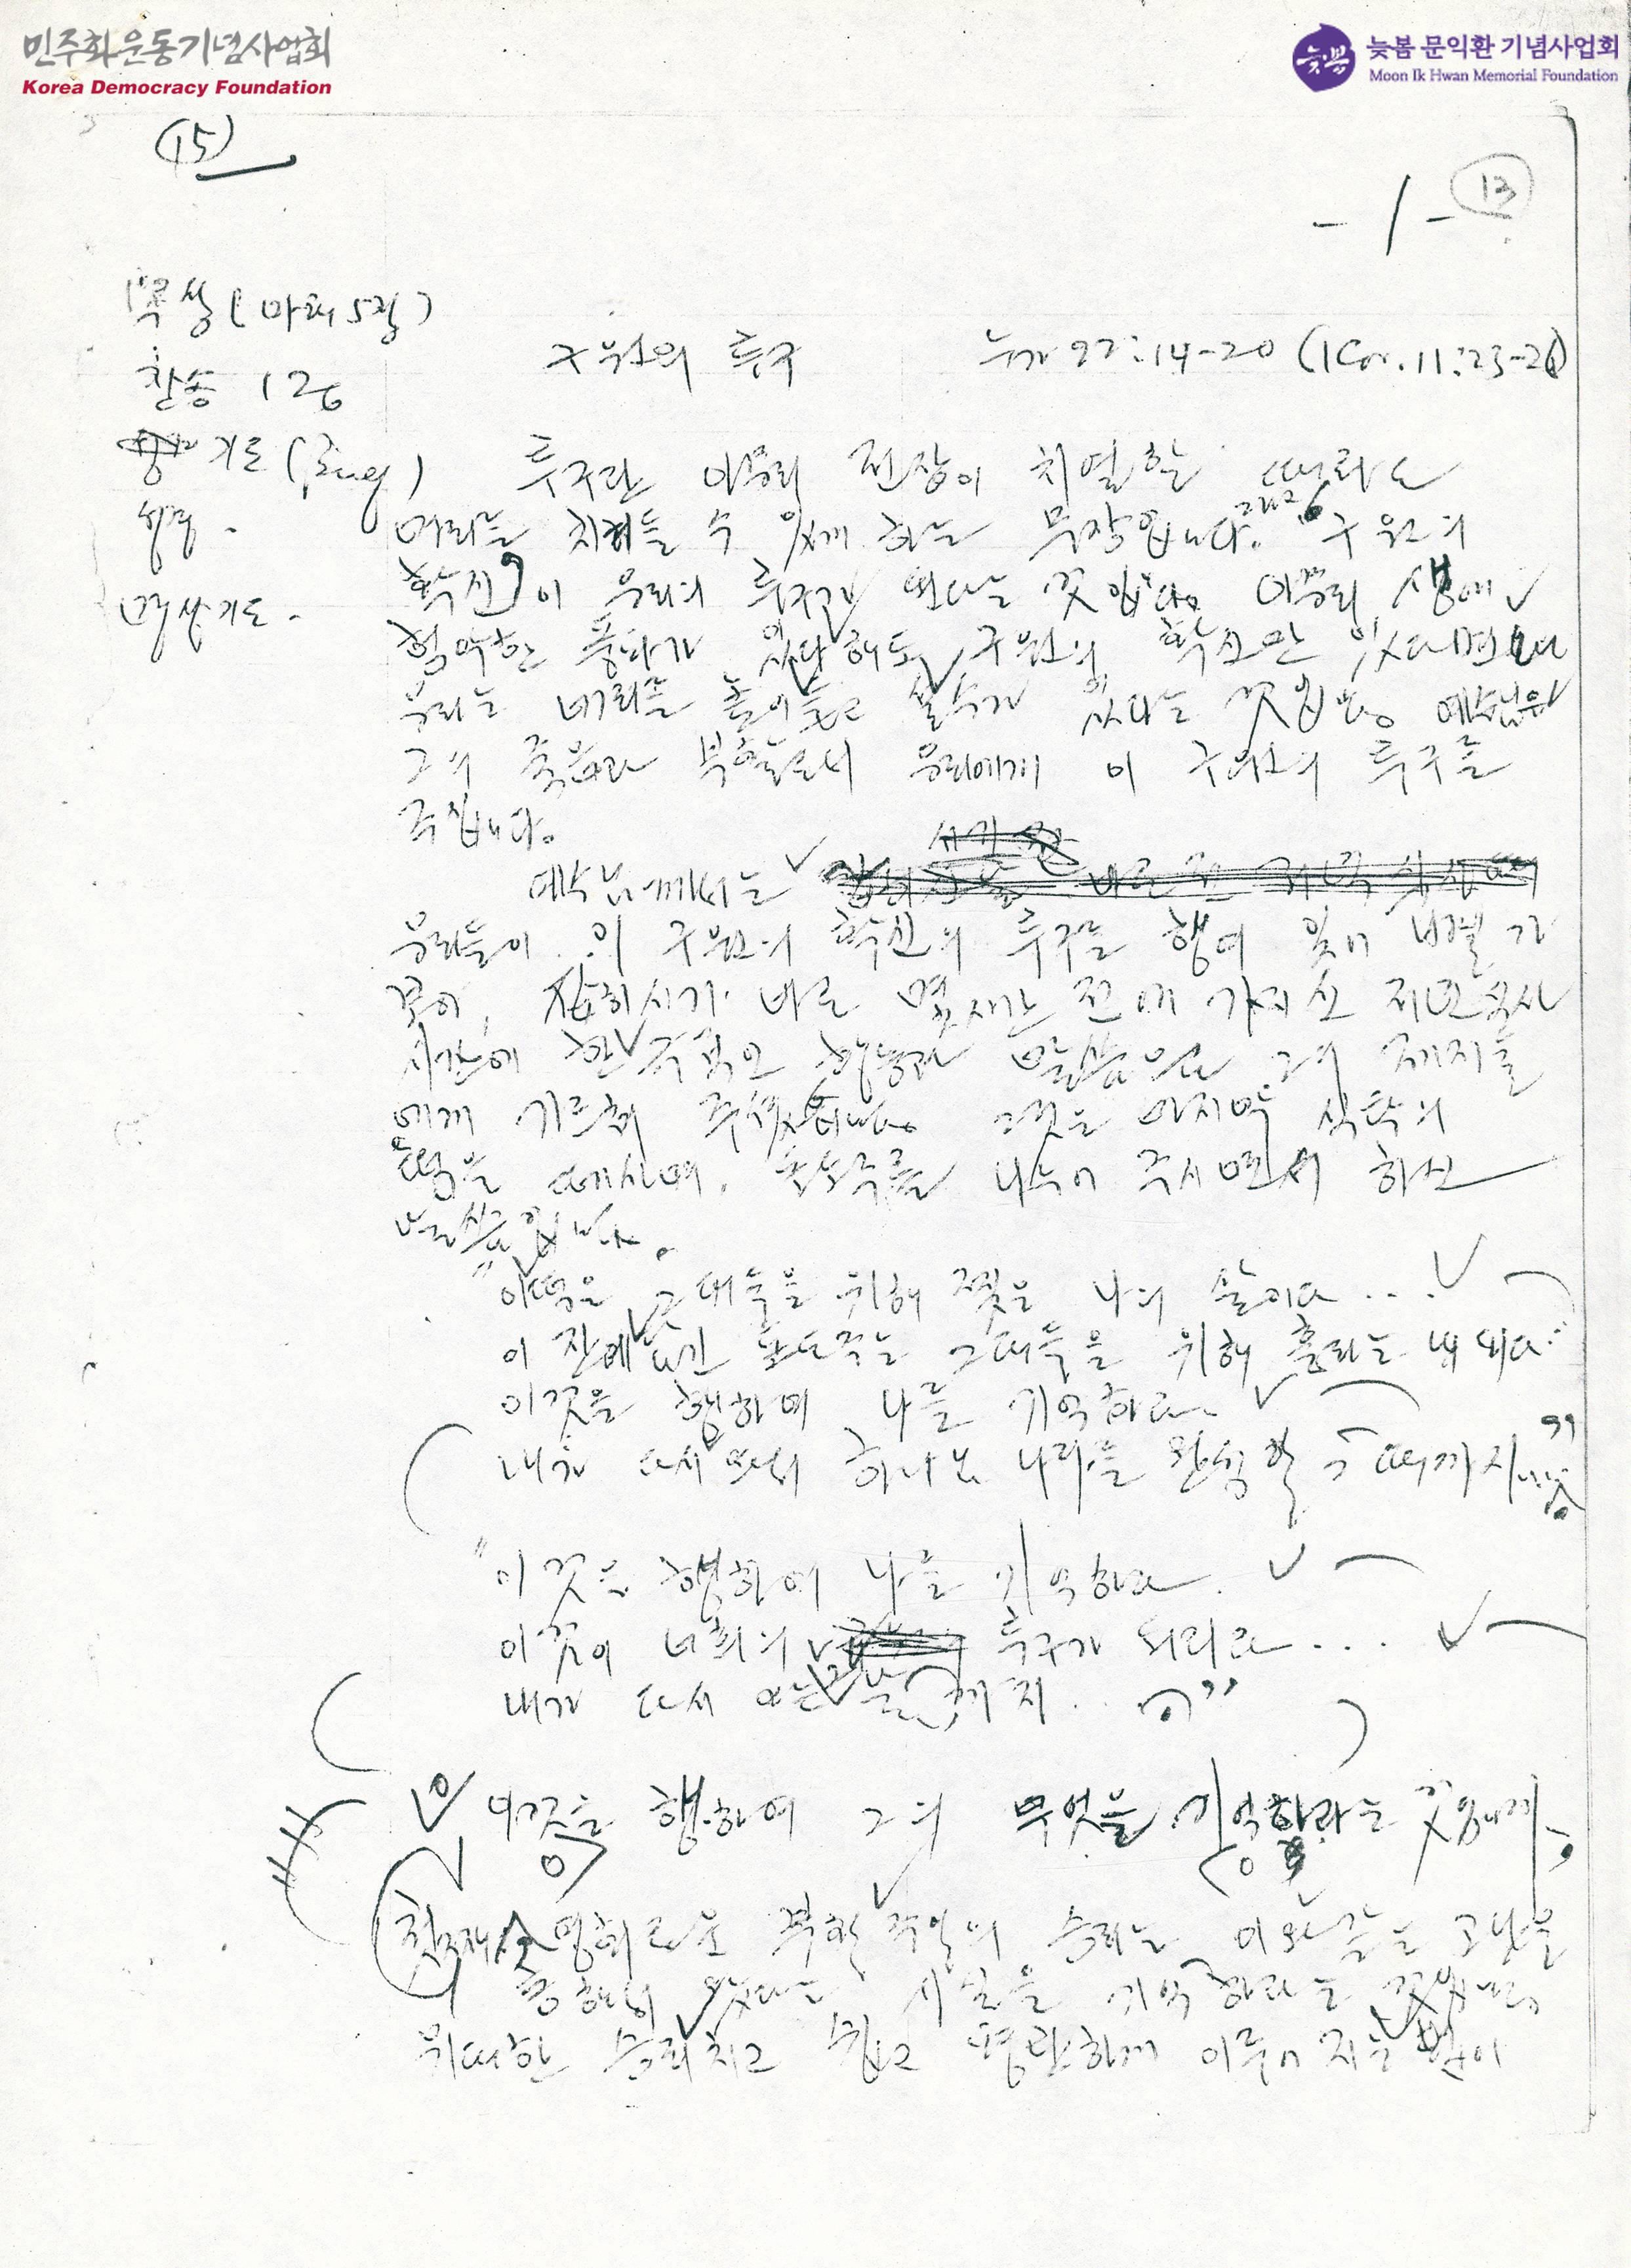 민주화운동기념사업회
Korea Democracy Foundation
늦봄 문익환 기념사업회
Moon Ik Hwan Memorial Foundation
늦봄
(15)
- 1 -
13
묵상 (마태 5장)
구원의 투구 누가 22:14-20 (1Cor. 11:23-26)
찬송 126
기도
투구란 아무리 전장이 치열할 때라도
머리를 치켜들 수 있게 하는 무장입니다. 구원의
확신이 우리의 투구가 된다는 것입니다. 아무리 생에
험악한 풍파가 있다 해도 구원의 확신만 있다면
우리는 머리를 높이 들고 살 수가 있다는 것입니다. 예수님은
그의 죽음과 부활로서 우리에게 이 구원의 투구를
주십니다.
예수님께서는
우리들이 이 구원의 확신의 투구를 행여 잊어 버릴가
바로 몇 시간 전에 가지신 저녁식사
시간에 한 행동과 말씀으로 그의 제자들
에게 그것은 마지막 식탁의
떡을 떼시며, 포도주를 나누어 주시면서 하신
말씀입니다.
"이 떡은 그대들을 위해 찢은 나의 살이다 . . .
이 잔에 담긴 포도주는 그대들을 위해 흘리는 내 피다 . .
이것을 행하여 나를 기억하라.
내가 다시 와서 하나님 나라를 완성할 때까지
"이것을 행하여 나를 기억하라.
이것이 너희의 투구가 되리라 . . .
내가 다시 오는 날까지 . . "
이것을 행하여 그의 무엇을 기억하라는 것입니까
첫째 영화로운 부활 주일의 승리는 이와 같은 고난을
통해서 왔다는 사실을 기억하라는 것입니다.
위대한 승리치고 쉽고 평탄하게 이루어지는 법이